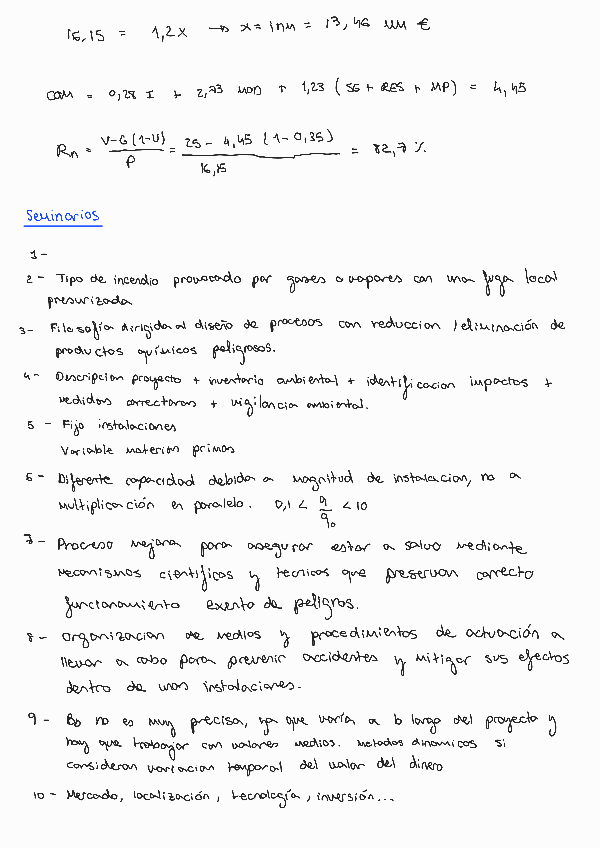 16,15 = 1,2x → x = inm = 13,46 MM €
COM = 0,28 I + 2,73 MOD + 1,23 (SG + RES + MP) = 4,45
Rn = V-G(1-U) / P = 25 - 4,45 (1-0,35) / 16,15 = 82,7 %
Seminarios
1-
2- Tipo de incendio provocado por gases o vapores con una fuga local
presurizada
3- Filosofía dirigida al diseño de procesos con reduccion / eliminación de
productos químicos peligrosos.
4- Descripcion proyecto + inventario ambiental + identificacion impactos +
medidas correctoras + vigilancia ambiental.
5 - Fijo instalaciones
Variable materias primas
6- Diferente capacidad debida a magnitud de instalacion, no a
multiplicación en paralelo. 0,1 < q/q₀ < 10
7- Proceso mejora para asegurar estar a salvo mediante
mecanismos cientificos y tecnicos que preservan correcto
funcionamiento exento de peligros.
8 - Organizacion de medios y procedimientos de actuación a
llevar a cabo para prevenir accidentes y mitigar sus efectos
dentro de unas instalaciones.
9 - no es muy precisa, ya que varía a lo largo del proyecto y
hay que trabajar con valores medios. Metodos dinamicos si
consideran variacion temporal del valor del dinero
10 - Mercado, localización, tecnología, inversión...